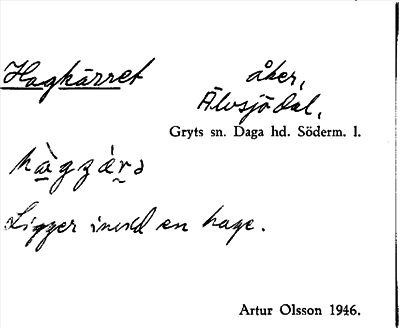 Hagkärret åker,
Älvsjödal,
Gryts sn. Daga hd. Söderm. l.
hàgzárə
Ligger invid en hage.
Artur Olsson 1946.